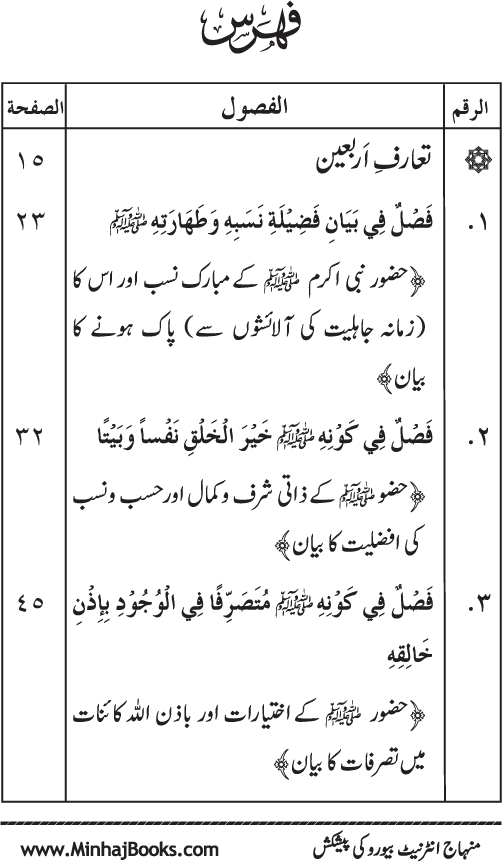 فہرس
الرقم الفصول الصفحة
تعارفِ اَربعین ١٥
١. فَصْلٌ فِي بَيَانِ فَضِيْلَةِ نَسَبِهِ وَطَهَارَتِهِ ﷺ ٢٣
﴿حضور نبی اکرم ﷺ کے مبارک نسب اور اس کا
(زمانہ جاہلیت کی آلائشوں سے) پاک ہونے کا
بیان﴾
٢. فَصْلٌ فِي كَوْنِهِ ﷺ خَيْرَ الْخَلْقِ نَفْساً وَبَيْتًا ٣٢
﴿حضو ﷺ کے ذاتی شرف وکمال اور حسب ونسب
کی افضلیت کا بیان﴾
٣. فَصْلٌ فِي كَوْنِهِ ﷺ مُتَصَرِّفًا فِي الْوُجُوْدِ بِإِذْنِ ٤٥
خَالِقِهِ
﴿حضور ﷺ کے اختیارات اور باذن اللہ کائنات
میں تصرفات کا بیان﴾
منہاج انٹرنیٹ بیورو کی پیشکش www.MinhajBooks.com